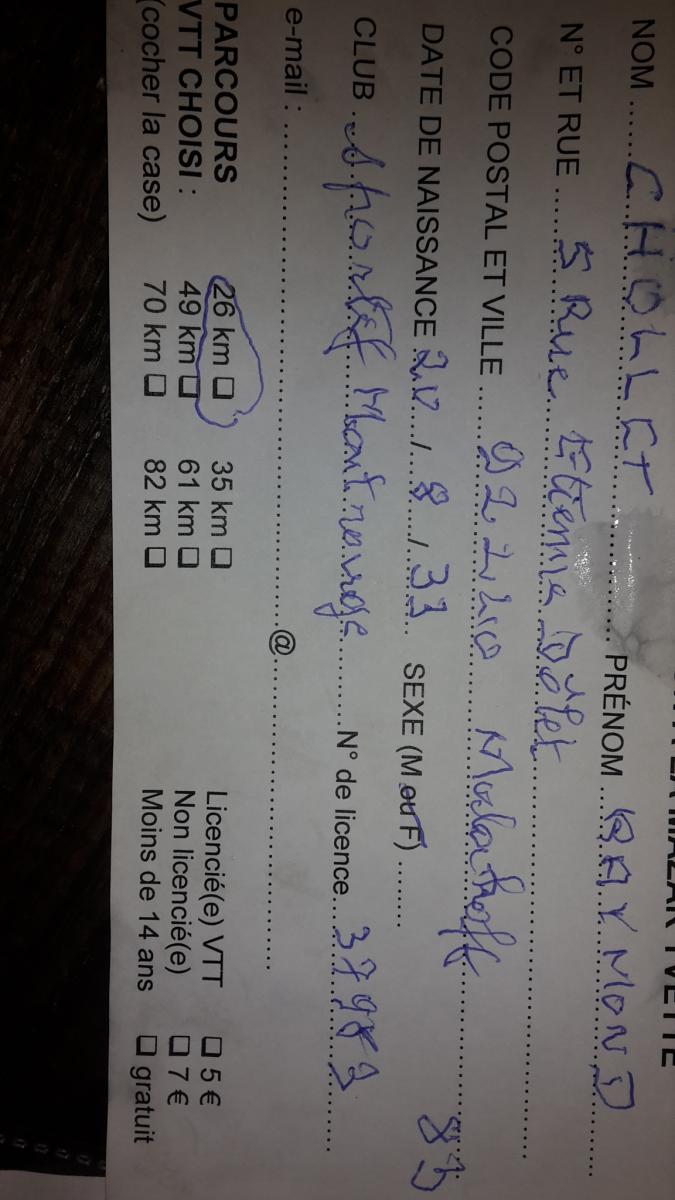 MAZAR YVETTE
NOM ...... CHOLLET ...... PRÉNOM .... RAYMOND
N° ET RUE .... 5 Rue Etienne Dolet
CODE POSTAL ET VILLE ..... 92240 Malakoff
DATE DE NAISSANCE 20 / 8 / 33 SEXE (M ou F) ....... 83
CLUB . Sportif Montrouge ........ N° de licence... 37983
e-mail : ...... @ ......
PARCOURS 26 km ☐ 35 km ☐ Licencié(e) VTT ☐ 5 €
VTT CHOISI : 49 km ☐ 61 km ☐ Non licencié(e) ☐ 7 €
(cocher la case) 70 km ☐ 82 km ☐ Moins de 14 ans ☐ gratuit